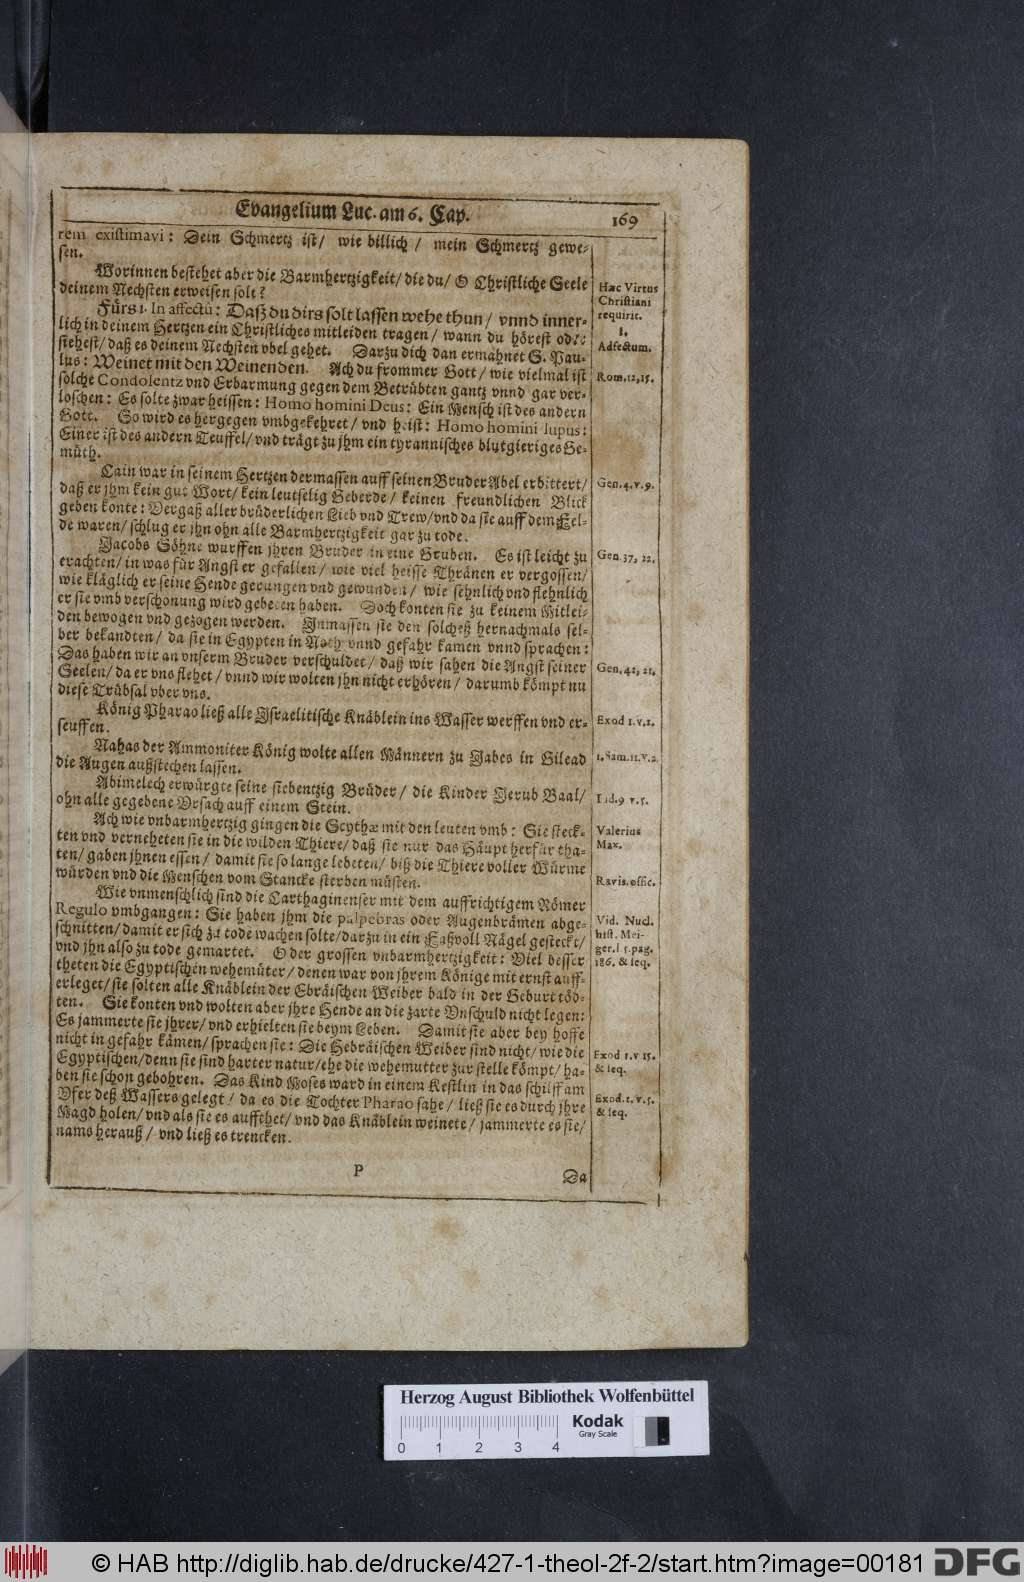 Evangelium Luc. am 6. Cap.
169
rem existimavi: Dein Schmertz ist/ wie billich/ mein Schmertz gewe-
sen.
Worinnen bestehet aber die Barmhertzigkeit/ die du/ O Christliche Seele
deinem Nechsten erweisen solt?
Fürs 1. In affectû: Daß du dirs solt lassen wehe thun/ vnnd inner-
lich in deinem Hertzen ein Christliches mitleiden tragen/ wann du hörest oder
siehest/ daß es deinem Nechsten vbel gehet. Darzu dich dan ermahnet S. Pau-
lus: Weinet mit den Weinenden. Ach du frommer Gott/ wie vielmal ist
solche Condolentz vnd Erbarmung gegen dem Betrübten gantz vnnd gar ver-
loschen: Es solte zwar heissen: Homo homini Deus: Ein Mensch ist des andern
Gott. So wird es hergegen vmbgekehret/ vnd heist: Homo homini lupus:
Einer ist des andern Teuffel/ vnd trägt zu jhm ein tyrannisches blutgieriges Ge-
müth.
Cain war in seinem Hertzen dermassen auff seinen Bruder Abel erbittert/
daß er jhm kein gut Wort/ kein leutselig Geberde/ keinen freundlichen Blick
geben konte: Vergaß aller brüderlichen Lieb vnd Trew/ vnd da sie auff dem Fel-
de waren/ schlug er jhn ohn alle Barmhertzigkeit gar zu tode.
Jacobs Söhne wurffen jhren Bruder in eine Gruben. Es ist leicht zu
erachten/ in was für Angst er gefallen/ wie viel heisse Thränen er vergossen/
wie kläglich er seine Hende gerungen vnd gewunden/ wie sehnlich vnd flehnlich
er sie vmb verschonung wird gebeten haben. Doch konten sie zu keinem Mitlei-
den bewogen vnd gezogen werden. Inmassen sie den solcheß hernachmals sel-
ber bekandten/ da sie in Egypten in Noth vnnd gefahr kamen vnnd sprachen:
Das haben wir an vnserm Bruder verschuldet/ daß wir sahen die Angst seiner
Seelen/ da er vns flehet/ vnnd wir wolten jhn nicht erhören/ darumb kömpt nu
diese Trübsal vber vns.
König Pharao ließ alle Israelitische Knäblein ins Wasser werffen vnd er-
seuffen.
Nahas der Ammoniter König wolte allen Männern zu Jabes in Gilead
die Augen außstechen lassen.
Abimelech erwürgte seine siebentzig Brüder/ die Kinder Jerub Baal/
ohn alle gegebene Vrsach auff einem Stein.
Ach wie vnbarmhertzig gingen die Scythæ mit den leuten vmb: Sie steck-
ten vnd verneheten sie in die wilden Thiere/ daß sie nur das Häupt herfür tha-
ten/ gaben jhnen essen/ damit sie so lange lebeten/ biß die Thiere voller Würme
würden vnd die Menschen vom Stancke sterben müsten.
Wie vnmenschlich sind die Carthaginenser mit dem auffrichtigem Römer
Regulo vmbgangen: Sie haben jhm die palpebras oder Augenbrämen abge-
schnitten/ damit er sich zu tode wachen solte/ darzu in ein Faßvoll Nägel gesteckt/
vnd jhn also zu tode gemartet. O der grossen vnbarmhertzigkeit: Viel besser
theten die Egyptischen wehemüter/ denen war von jhrem Könige mit ernst auff-
erleget/ sie solten alle Knäblein der Ebräischen Weiber bald in der Geburt töd-
ten. Sie konten vnd wolten aber jhre Hende an die zarte Vnschuld nicht legen:
Es jammerte sie jhrer/ vnd erhielten sie beym Leben. Damit sie aber bey hoffe
nicht in gefahr kämen/ sprachen sie: Die Hebräischen Weiber sind nicht/ wie die
Egyptischen/ denn sie sind harter natur/ ehe die wehemutter zur stelle kömpt/ ha-
ben sie schon gebohren. Das Kind Moses ward in einem Kestlin in das schilff am
Vfer deß Wassers gelegt/ da es die Tochter Pharao sahe/ ließ sie es durch jhre
Magd holen/ vnd als sie es auffthet/ vnd das Knäblein weinete/ jammerte es sie/
nams herauß/ vnd ließ es trencken.
P
Da
Hæc Virtus
Christiani
requirit.
1.
Adfectum.
Rom. 12, 15.
Gen. 4. v. 9.
Gen. 37, 22.
Gen. 42, 21.
Exod 1. v. 1.
1. Sam. 11. V. 2
Iud. 9 v. 5.
Valerius
Max.
Ravis. offic.
Vid. Nucl.
hist. Mei-
ger. l 5. pag.
186. & seq.
Exod 1. v 15.
& seq.
Exod. 1. v. 5.
& seq.
Herzog August Bibliothek Wolfenbüttel
0 1 2 3 4
Kodak
Gray Scale
© HAB http://diglib.hab.de/drucke/427-1-theol-2f-2/start.htm?image=00181
DFG